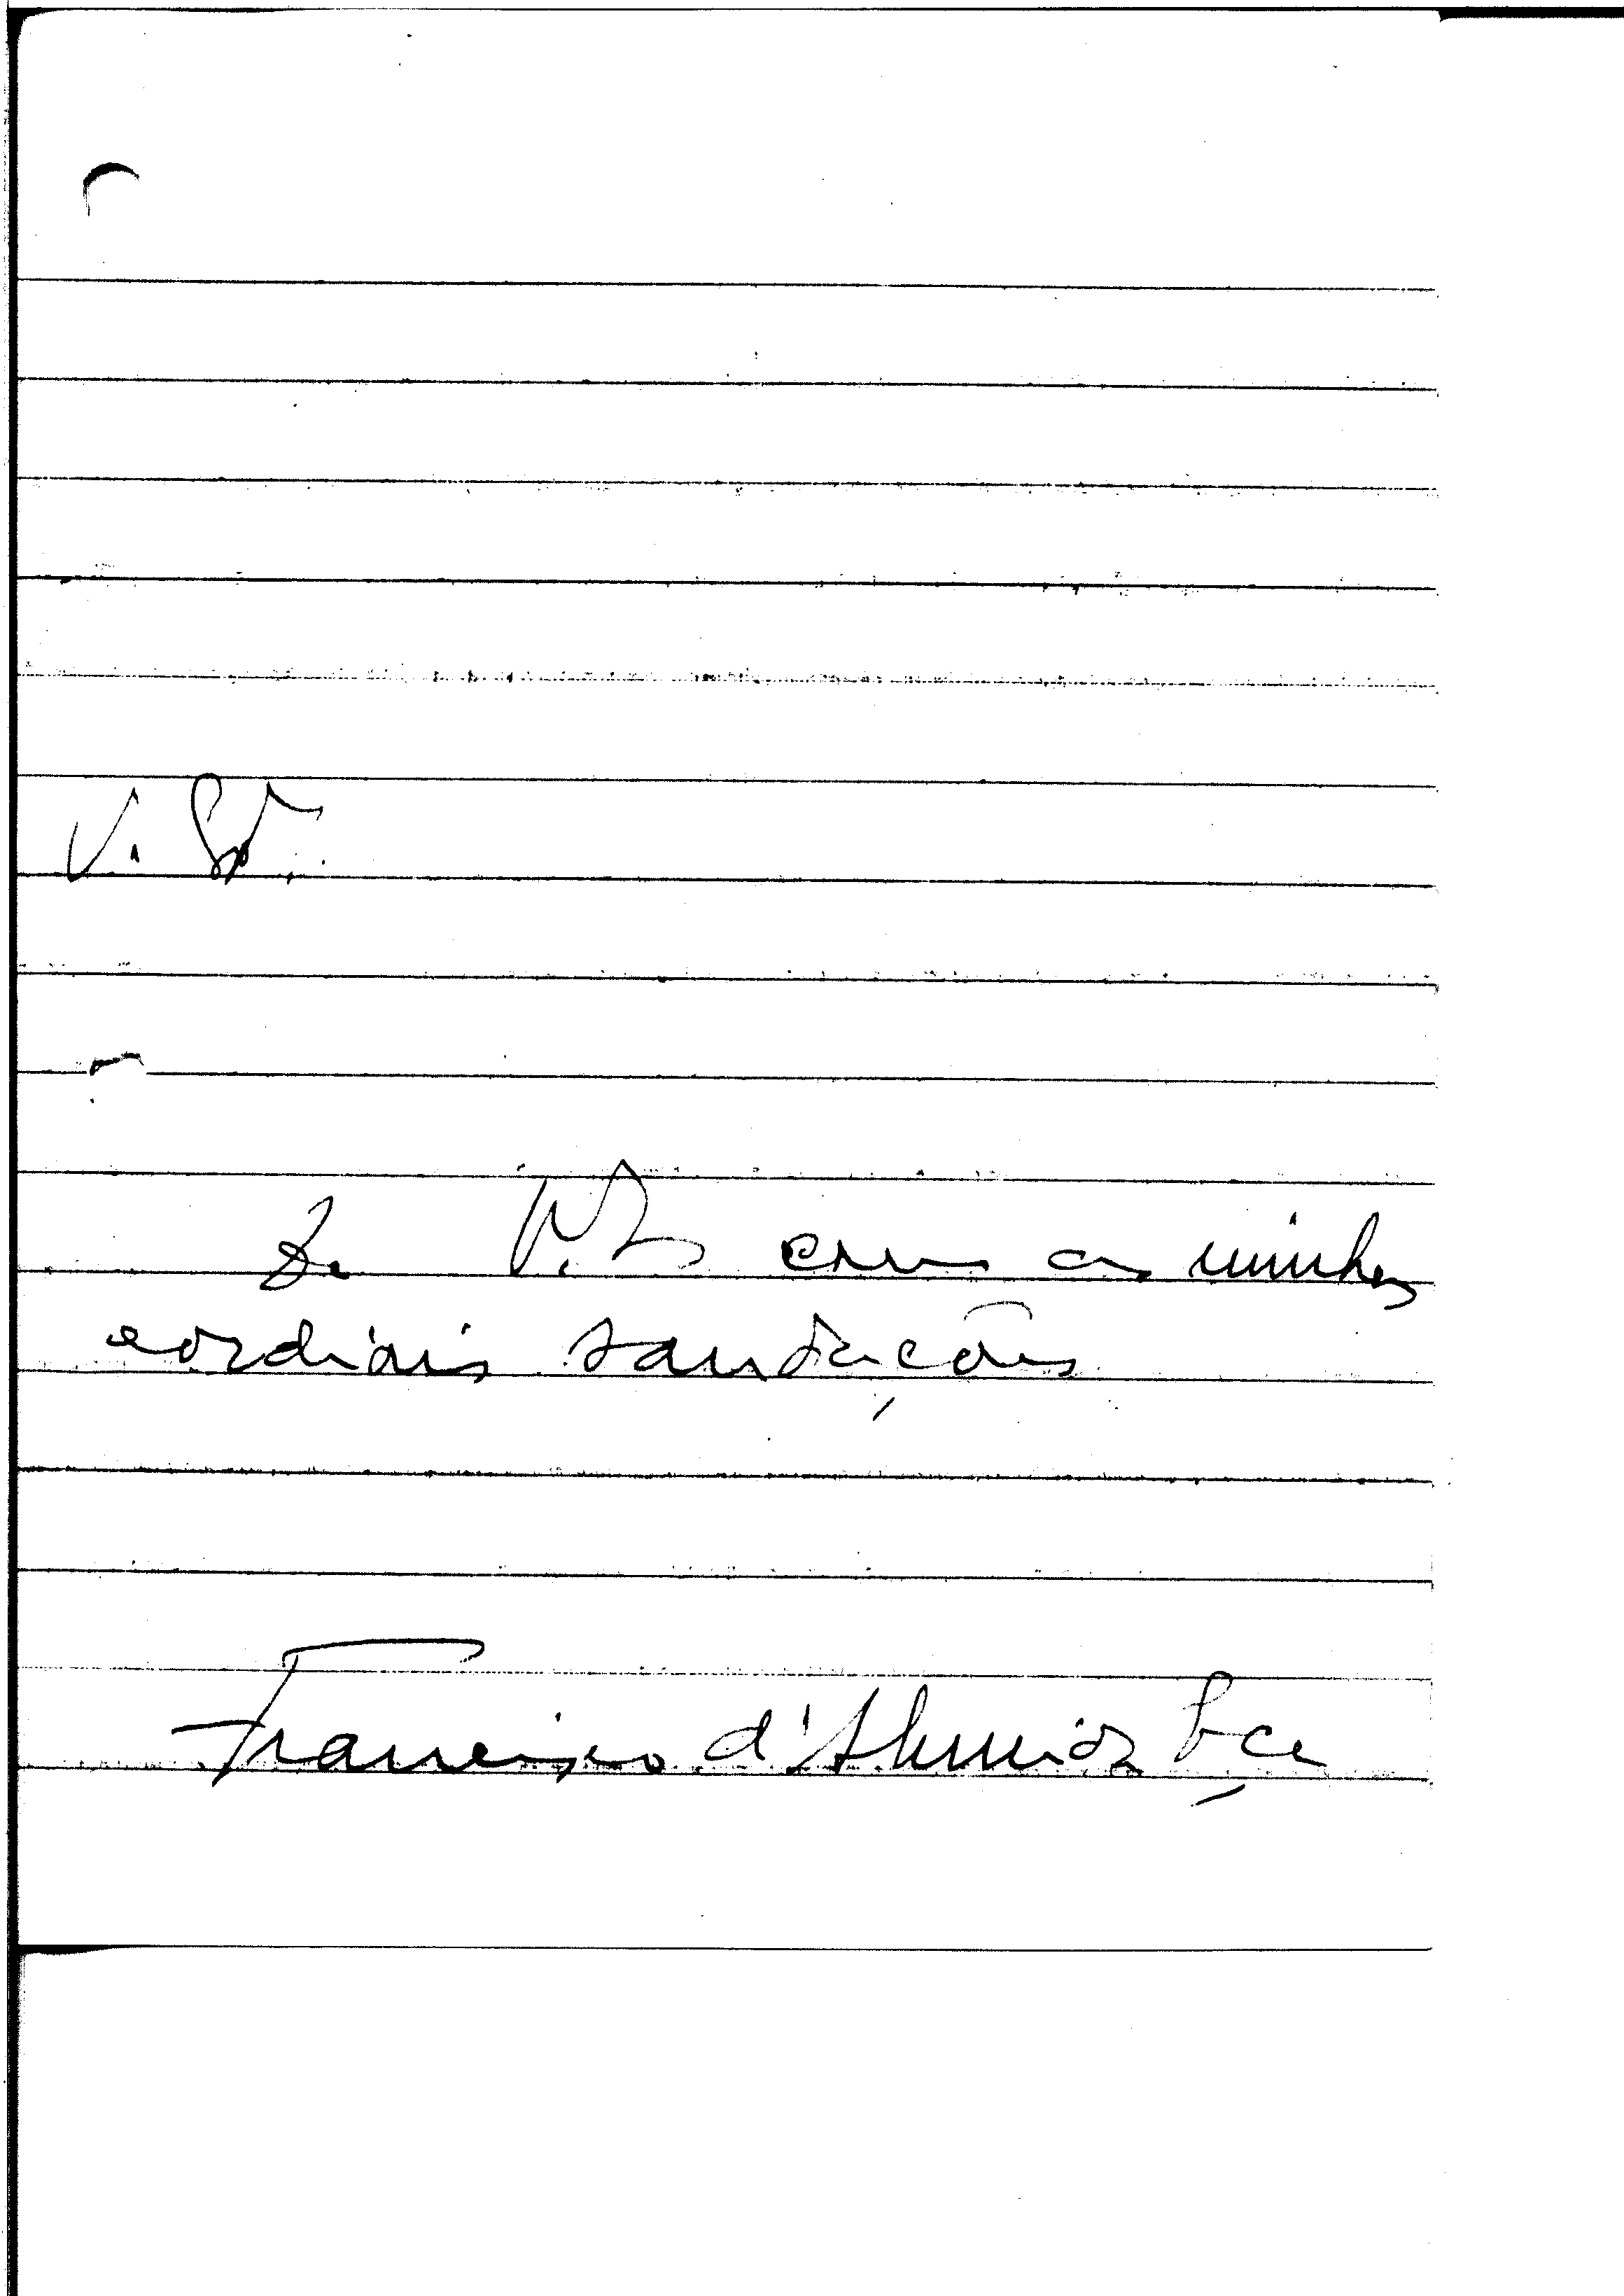 V. S.ª.
De V. S. com as minhas
cordiais saudações
Francisco d'Almeida